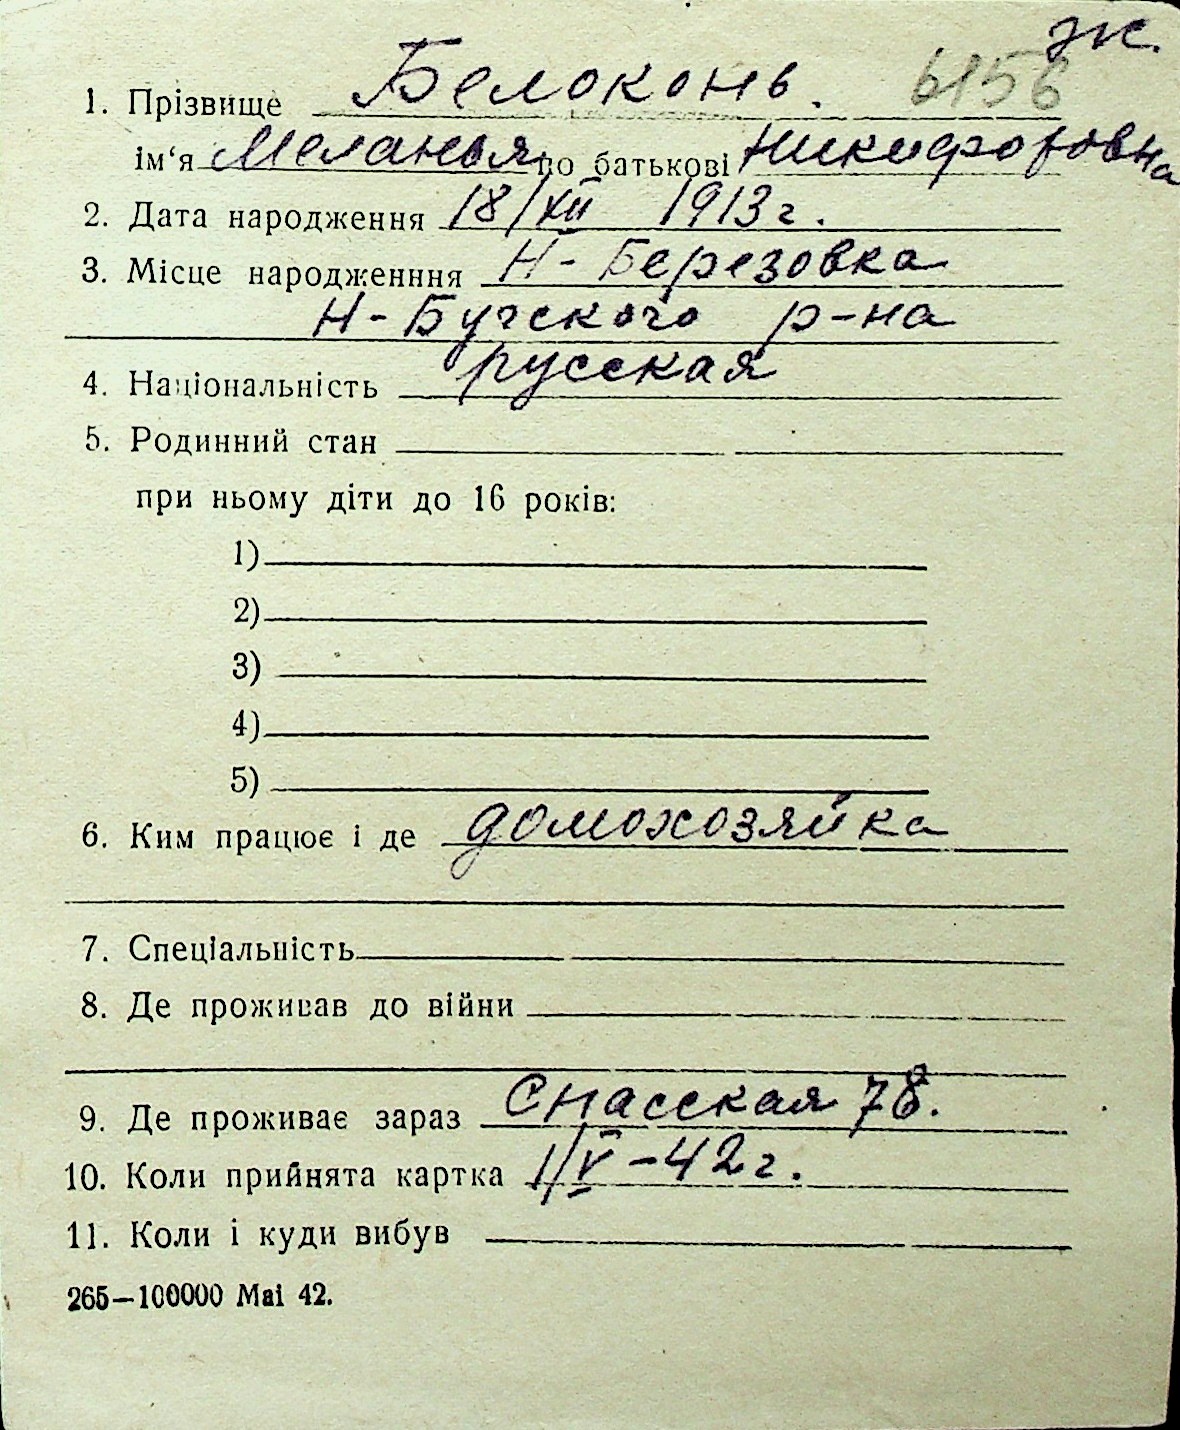 ж.
1. Прізвище Белоконь. 6156
ім‘я Меланья по батькові Никифоровна
2. Дата народження 18/XII 1913 г.
3. Місце народженння Н-Березовка
Н-Бугского р-на
4. Національність русская
5. Родинний стан
при ньому діти до 16 років:
1)
2)
3)
4)
5)
6. Ким працює і де домохозяйка
7. Спеціальність
8. Де проживав до війни
9. Де проживає зараз Спасская 78.
10. Коли прийнята картка 1/V-42 г.
11. Коли і куди вибув
265—100000 Mai 42.